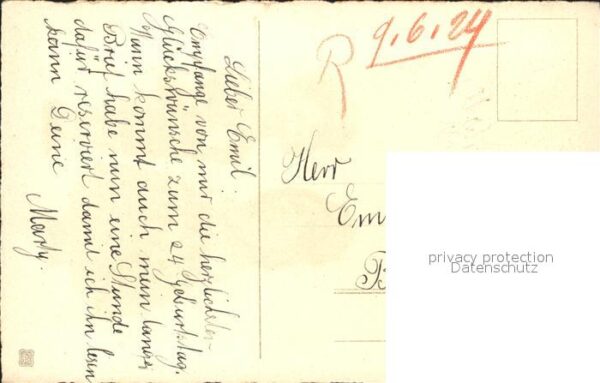 Lieber Emil.
Empfange von mir die herzlichsten
Glückwünsche zum 24 Geburtstag.
Nun kommt auch mein langer
Brief habe nun eine Stunde
dafür reserviert damit ich ihn lesen
kann Deine
Marty.
R 9.6.24
Herr
Em
B
privacy protection
Datenschutz